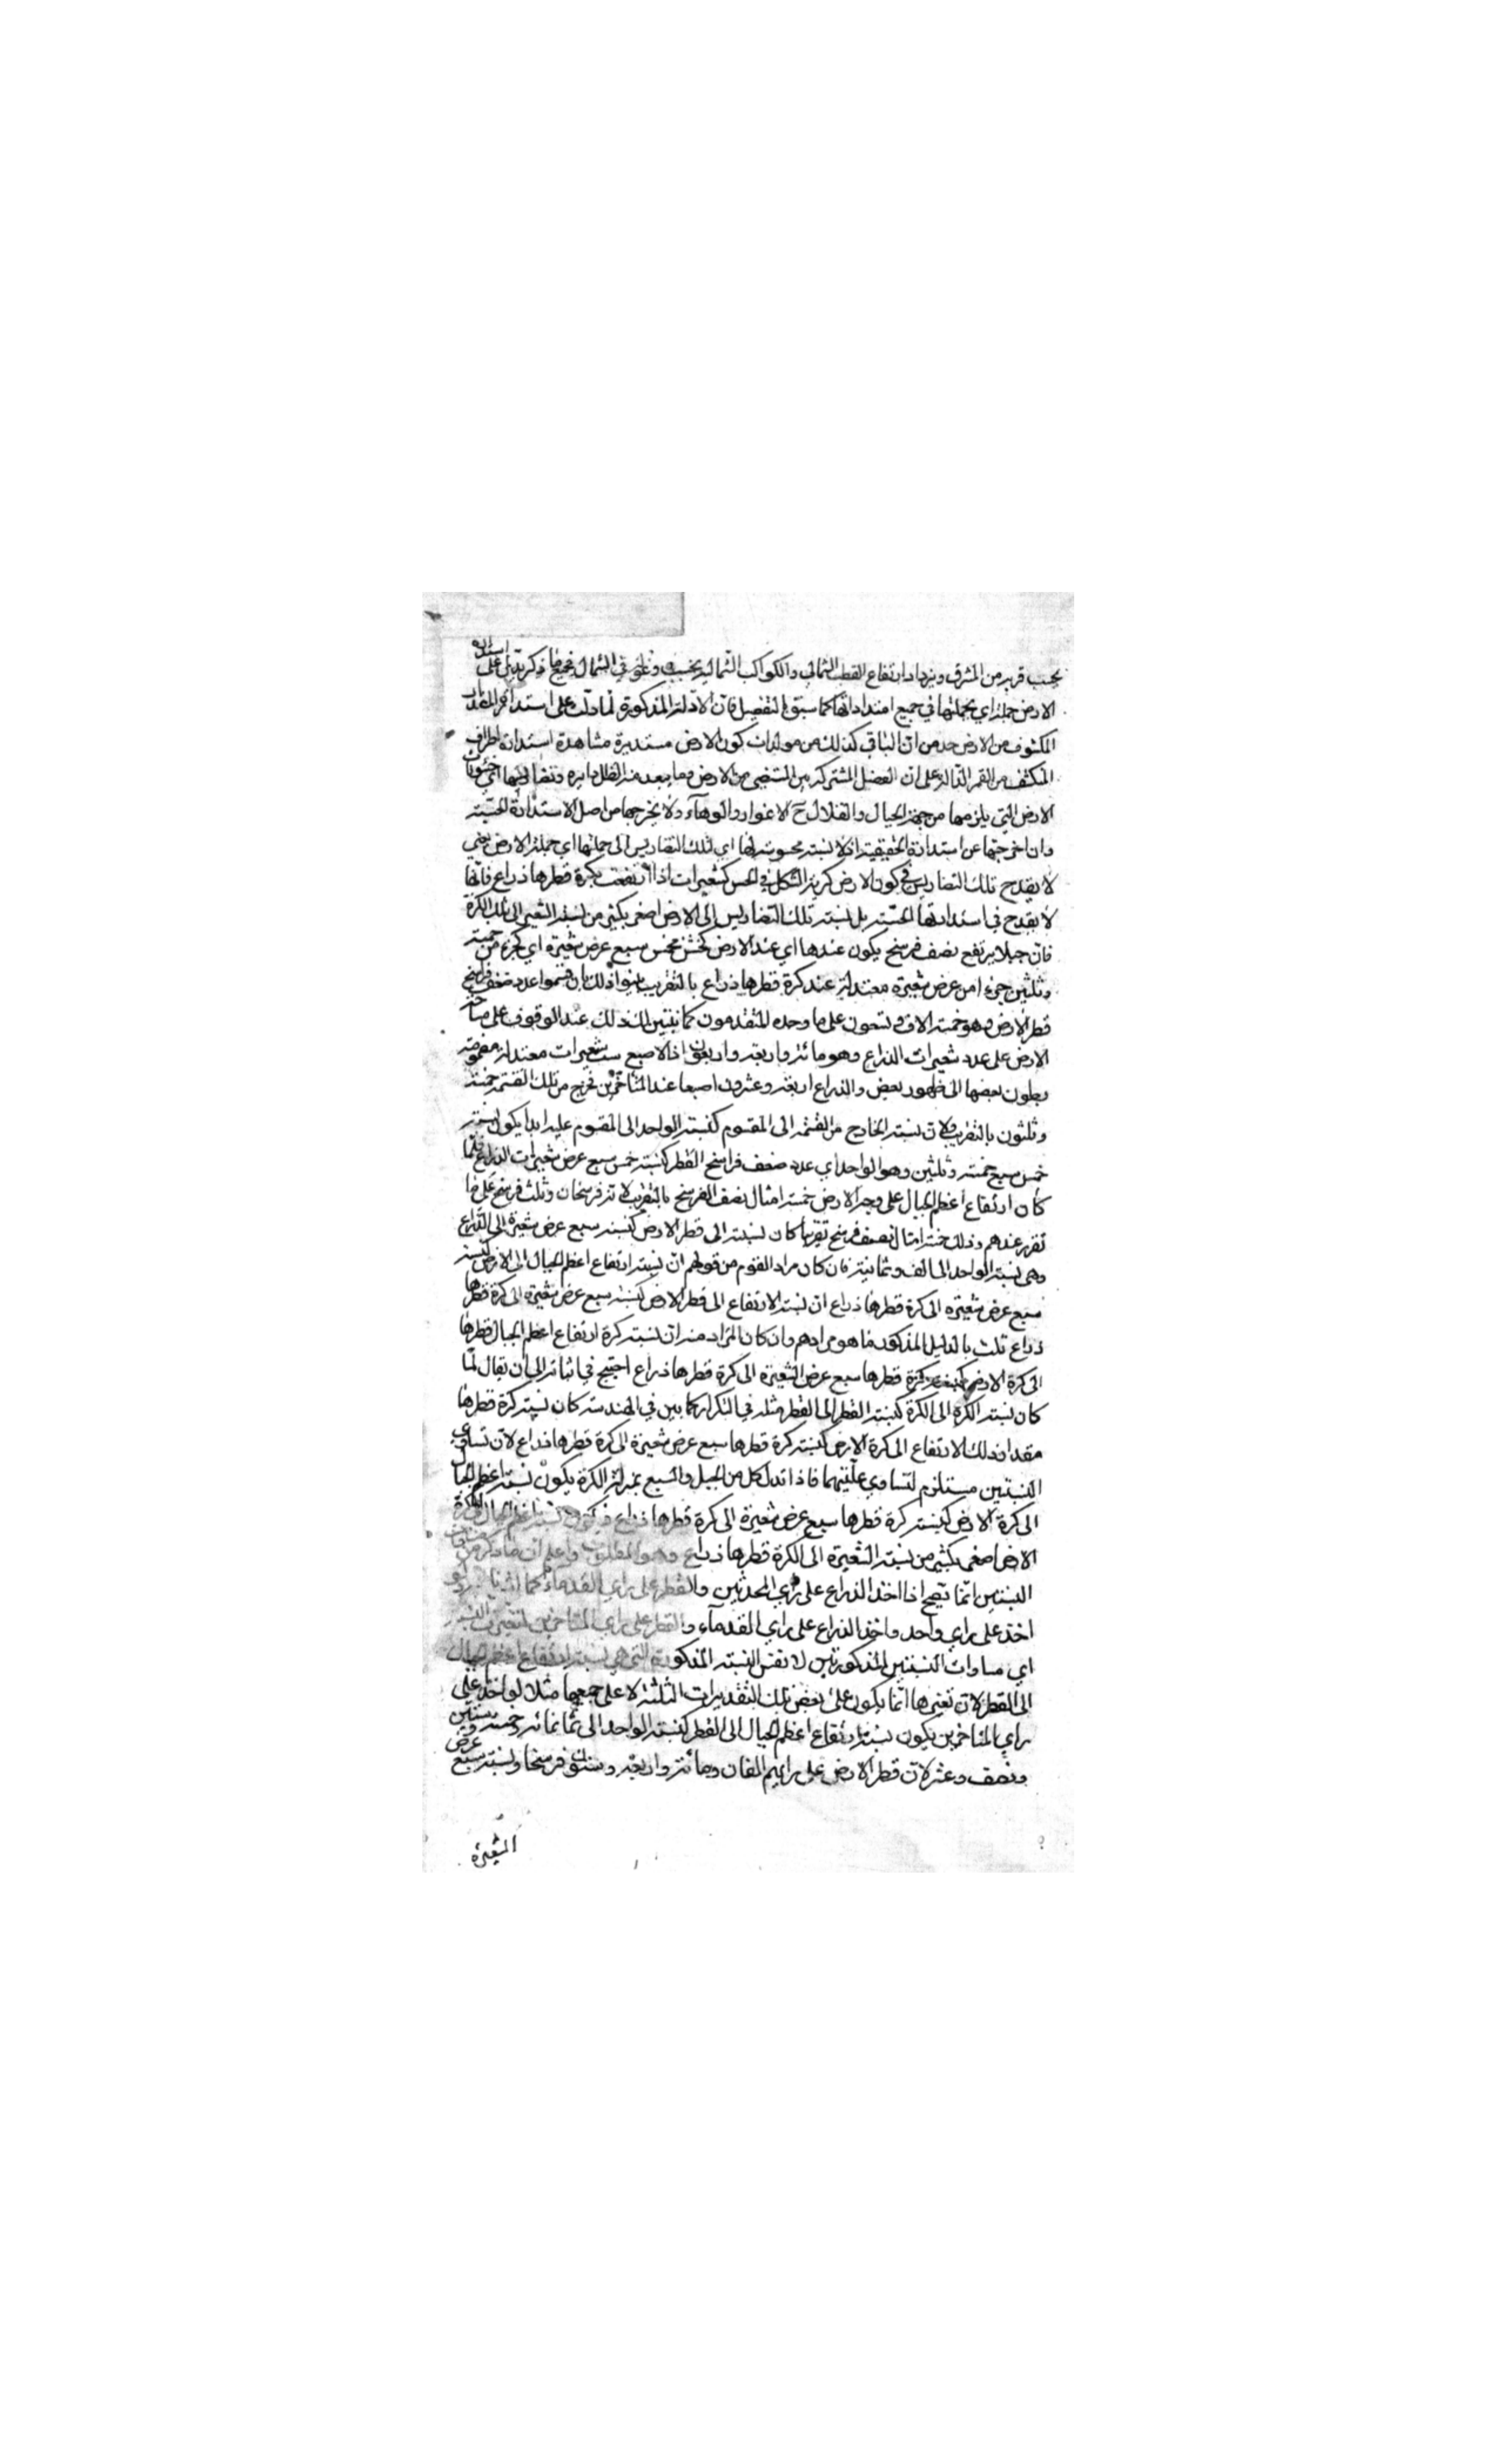 بحسب قربه من المشرق ويزداد ارتفاع القطب الشمالي والكواكب الشمالية بحسب وغوله في الشمال فجميع ما ذكر يدل على استدارة
الارض جملة اي بجملتها في جميع امتداداتها كما سبق بالتفصيل فان الادلة المذكورة لما دلت على استدارة القدر
المكشوف من الارض حدس ان الباقي كذلك من مويدات كون الارض مستديرة مشاهدة استدارة اطراف
المنكسف من القمر الدالة على ان الفصل المشترك بين المستضيء من الارض وما يبعد منه الظل دايرة وتضاريسها اي خشونات
الارض التي يلزمها من جهة الجبال والتلال ح الاغوار والوهاد ولا يخرجها من اصل الاستدارة الحسية
وان اخرجتها عن استدارة الحقيقية اذ لا نسبة محسوسة لها اي لتلك التضاريس الى جملتها اي جملة الارض يعني
لا يقدح تلك التضاريس في كون الارض كرية الشكل في الحس كشعيرات اذا ارتفعت بكرة قطرها ذراع فانها
لا يقدح في استدارتها الحسية بل نسبة تلك التضاريس الى الارض اصغر بكثير من نسبة الشعيرة الى تلك الكرة
فان جبلا يرتفع نصف فرسخ يكون عندها اي عند الارض كخمس سبع عرض شعيرة اي كجزء من خمسة
وثلثين جزءا من عرض شعيرة معتدلة عند كرة قطرها ذراع بالتقريب بينوا ذلك بان قسموا عدد ضعف فراسخ
قطر الارض وهو خمسة الاف وتسعون على ما وجده المتقدمون كما نبين لك ذلك عند الوقوف على مساحة
الارض على عدد شعيرات الذراع وهو مائة واربعة واربعون اذ الاصبع ست شعيرات معتدلة مضمومة
بطون بعضها الى ظهور بعض والذراع اربعة وعشرون اصبعا عند المتاخرين يخرج من تلك القسمة خمسة
وثلثون بالتقريب ولان نسبة الخارج من القسمة الى المقسوم كنسبة الواحد الى المقسوم عليه ابدا يكون نسبة
خمس سبع خمسة وثلثين وهو الواحد اي عدد ضعف فراسخ القطر كنسبة خمس سبع عرض شعيرات الذراع فلما
كان ارتفاع اعظم الجبال على وجه الارض خمسة امثال نصف الفرسخ بالتقريب لانه فرسخان وثلث فرسخ على ما
تقرر عندهم وذلك خمسة امثال نصف فرسخ تقريبا كان نسبته الى قطر الارض كنسبة سبع عرض شعيرة الى الذراع
وهي نسبة الواحد الى الف وثمانية فان كان مراد القوم من قولهم ان نسبة ارتفاع اعظم الجبال الى الارض كنسبة
سبع عرض شعيرة الى كرة قطرها ذراع ان نسبة الارتفاع الى قطر الارض كنسبة سبع عرض شعيرة الى كرة قطرها
ذراع ثبت بالدليل المذكور ما هو مرادهم وان كان المراد منه ان نسبة كرة ارتفاع اعظم الجبال قطرها
الى كرة الارض كنسبة كرة قطرها سبع عرض الشعيرة الى كرة قطرها ذراع احتيج في اثباته الى ان يقال لما
كان نسبة الكرة الى الكرة كنسبة القطر الى القطر مثلثة في التكرار كما بين في الهندسة كان نسبة كرة قطرها
مقدار ذلك الارتفاع الى كرة الارض كنسبة كرة قطرها سبع عرض شعيرة الى كرة قطرها ذراع لان تساوي
النسبتين مستلزم لتساوي مثلثيهما فاذا تدل كل من الجبل والسبع بمنزلة الكرة يكون نسبة اعظم الجبال
الى كرة الارض كنسبة كرة قطرها سبع عرض شعيرة الى كرة قطرها ذراع فيكون نسبة اعظم الجبال الى كرة
الارض اصغر بكثير من نسبة الشعيرة الى الكرة قطرها ذراع وهو المطلوب واعلم ان ما ذكر من
النسبتين انما تصح اذا اخذ الذراع على راي المحدثين والقطر على راي القدماء كما اشرنا
اخذ على راي واحد واخذ الذراع على راي القدماء والقطر على راي المتاخرين لتغيرت النسبة
اي مساوات النسبتين المذكورتين لا نفس النسبة المذكورة التي هي نسبة ارتفاع اعظم الجبال
الى القطر لان تغيرها انما يكون على بعض تلك التقديرات الثلثة لا على جميعها مثلا لو اخذ على
راي المتاخرين يكون نسبة ارتفاع اعظم الجبال الى القطر كنسبة الواحد الى ثمانمائة وخمسة وستين
ونصف وعشر لان قطر الارض على رايهم الفان ومائة واربعة وستون فرسخا ونسبة سبع عرض
الشعيرة